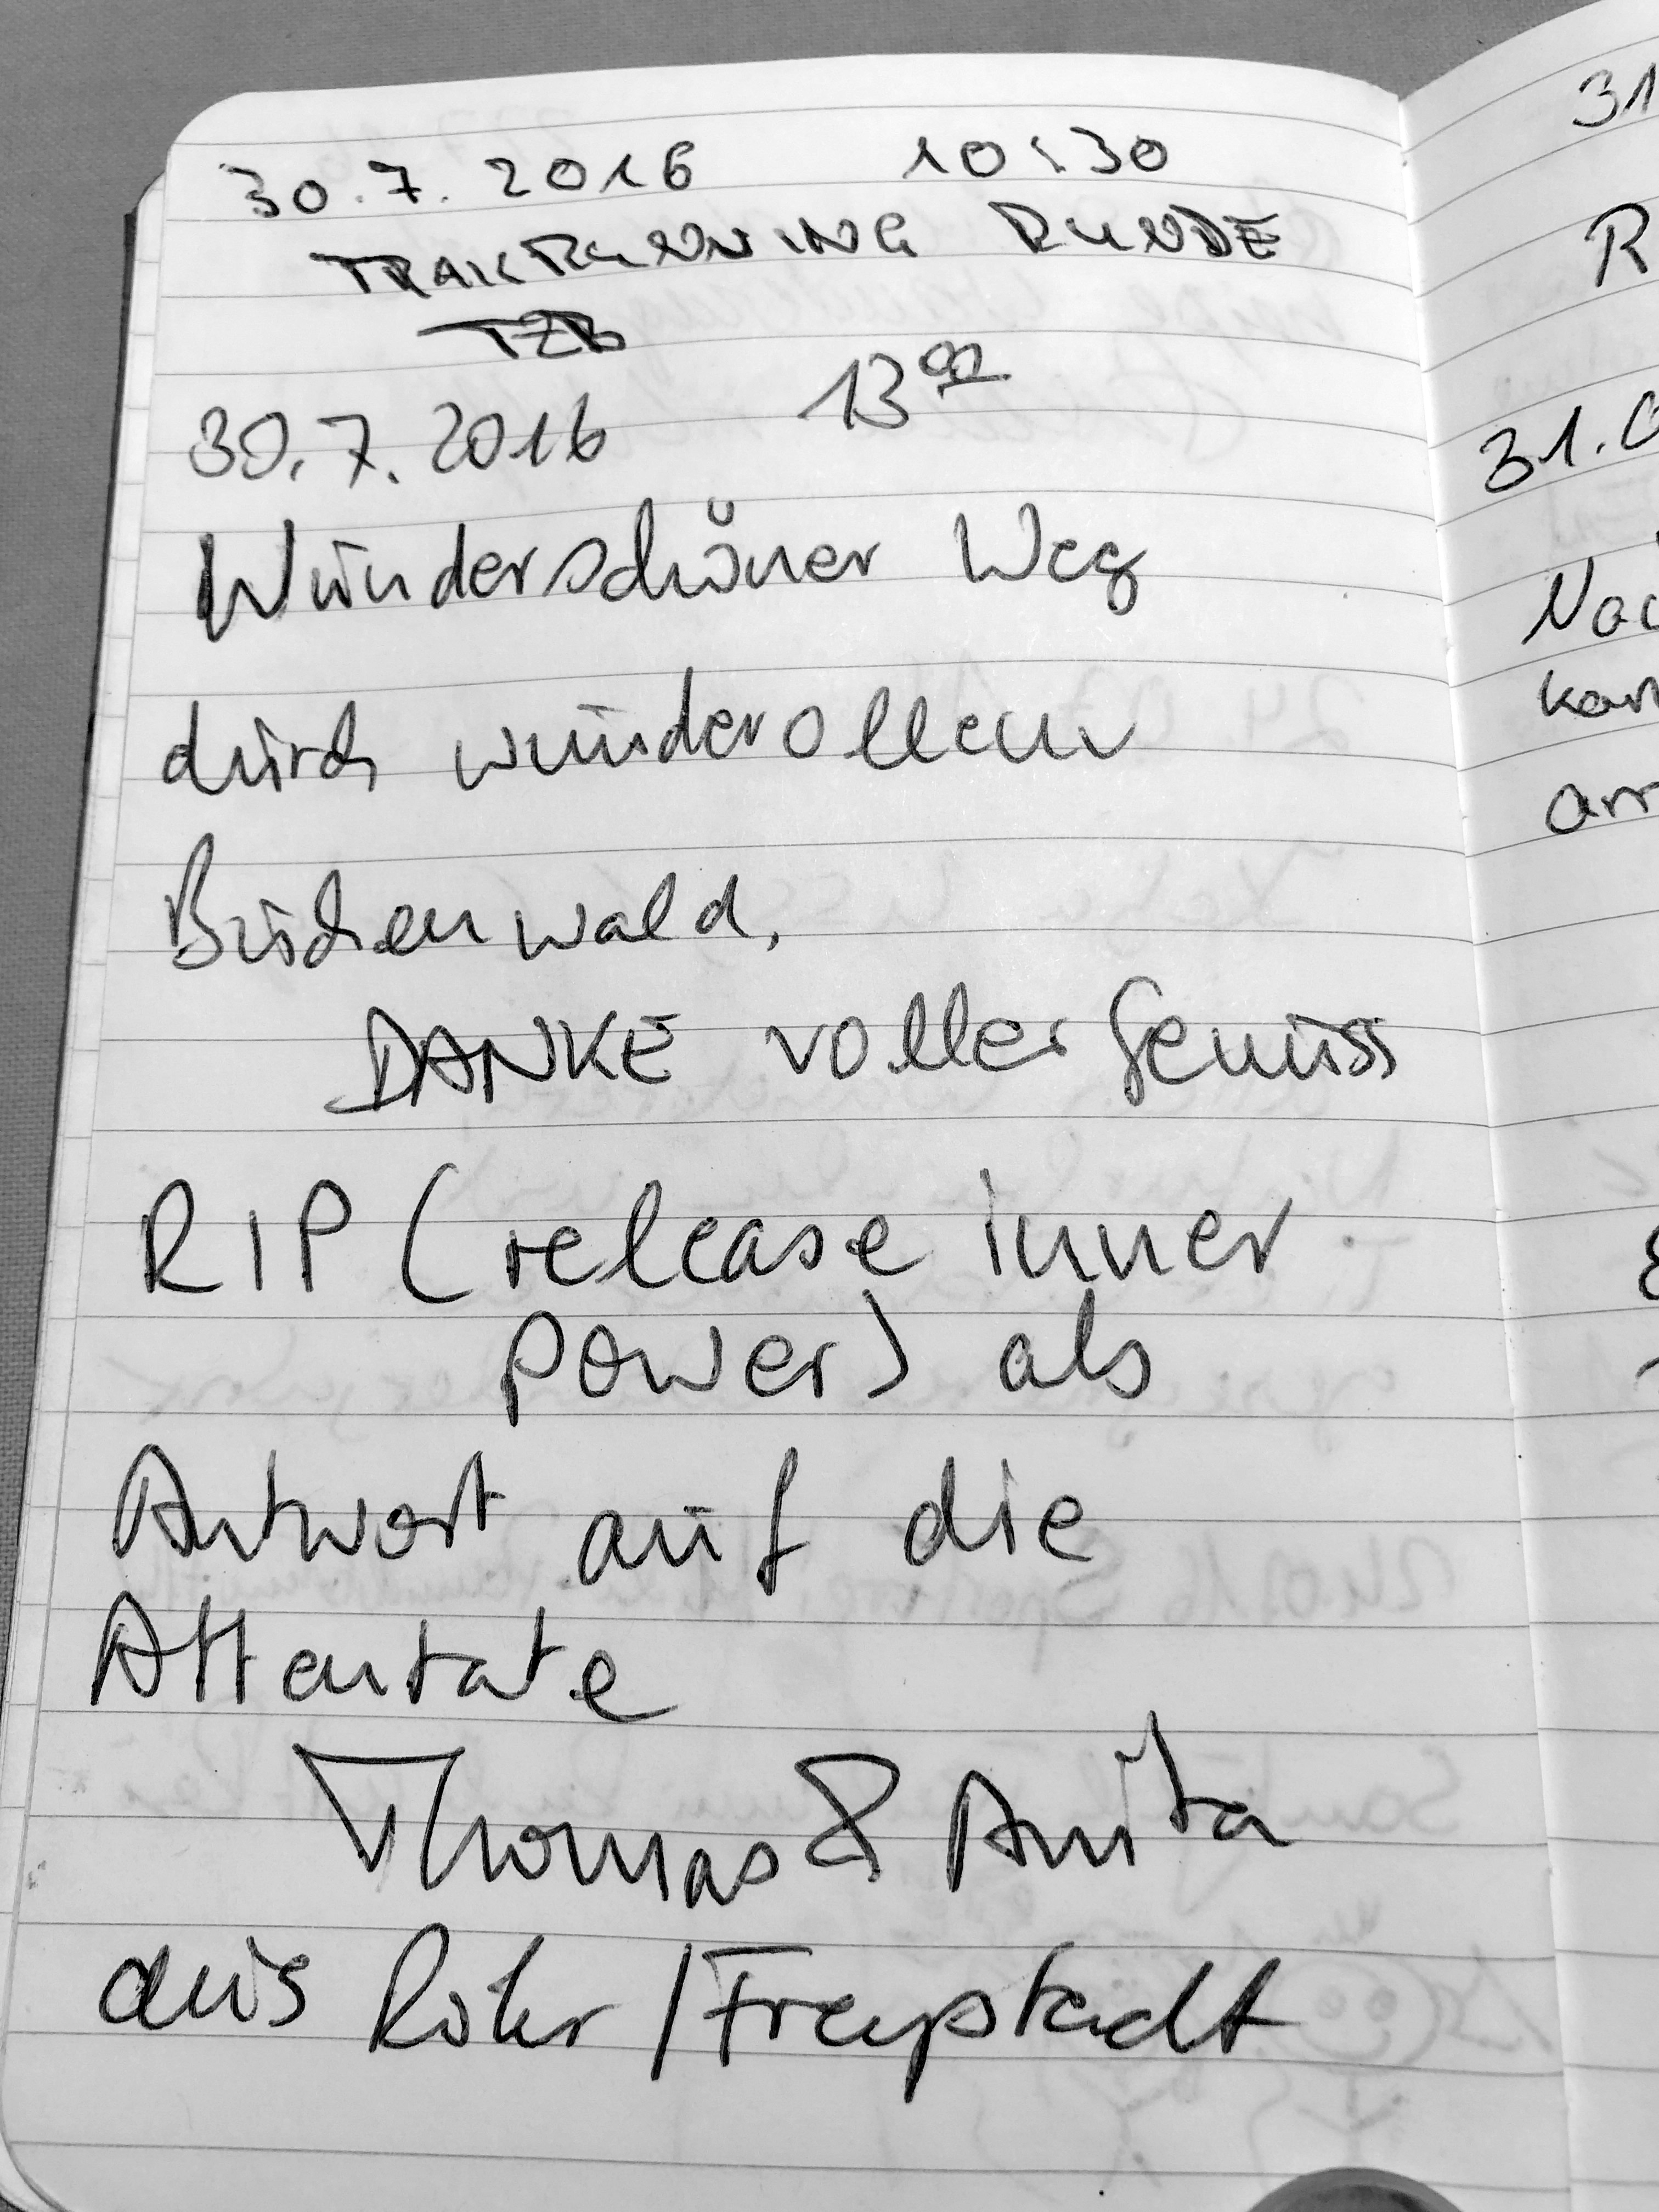 30.7.2016 10:30
TRAILRUNNING RUNDE
TZB
30.7.2016 13⁰⁰
Wunderschöner Weg
durch wunderollem
Buchenwald,
DANKE voller Genuss
RIP (release inner
power) als
Antwort auf die
Attentate
Thomas & Anita
aus Rohr / Freystadt
31
R
31.0
Noc
kan
arr